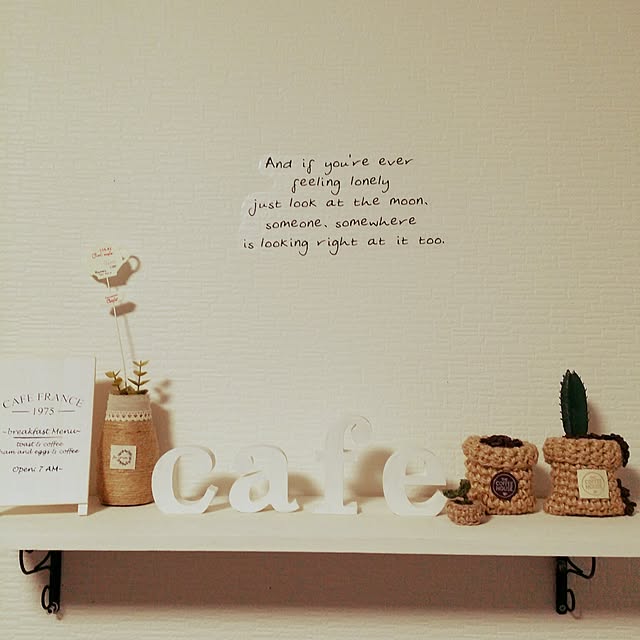 And if you're ever
feeling lonely
just look at the moon.
someone, somewhere
is looking right at it too.
CAFE FRANCE
1975
~breakfast Menu~
toast & coffee
ham and eggs & coffee
Open: 7 AM~
cafe
COFFEE
HOUSE